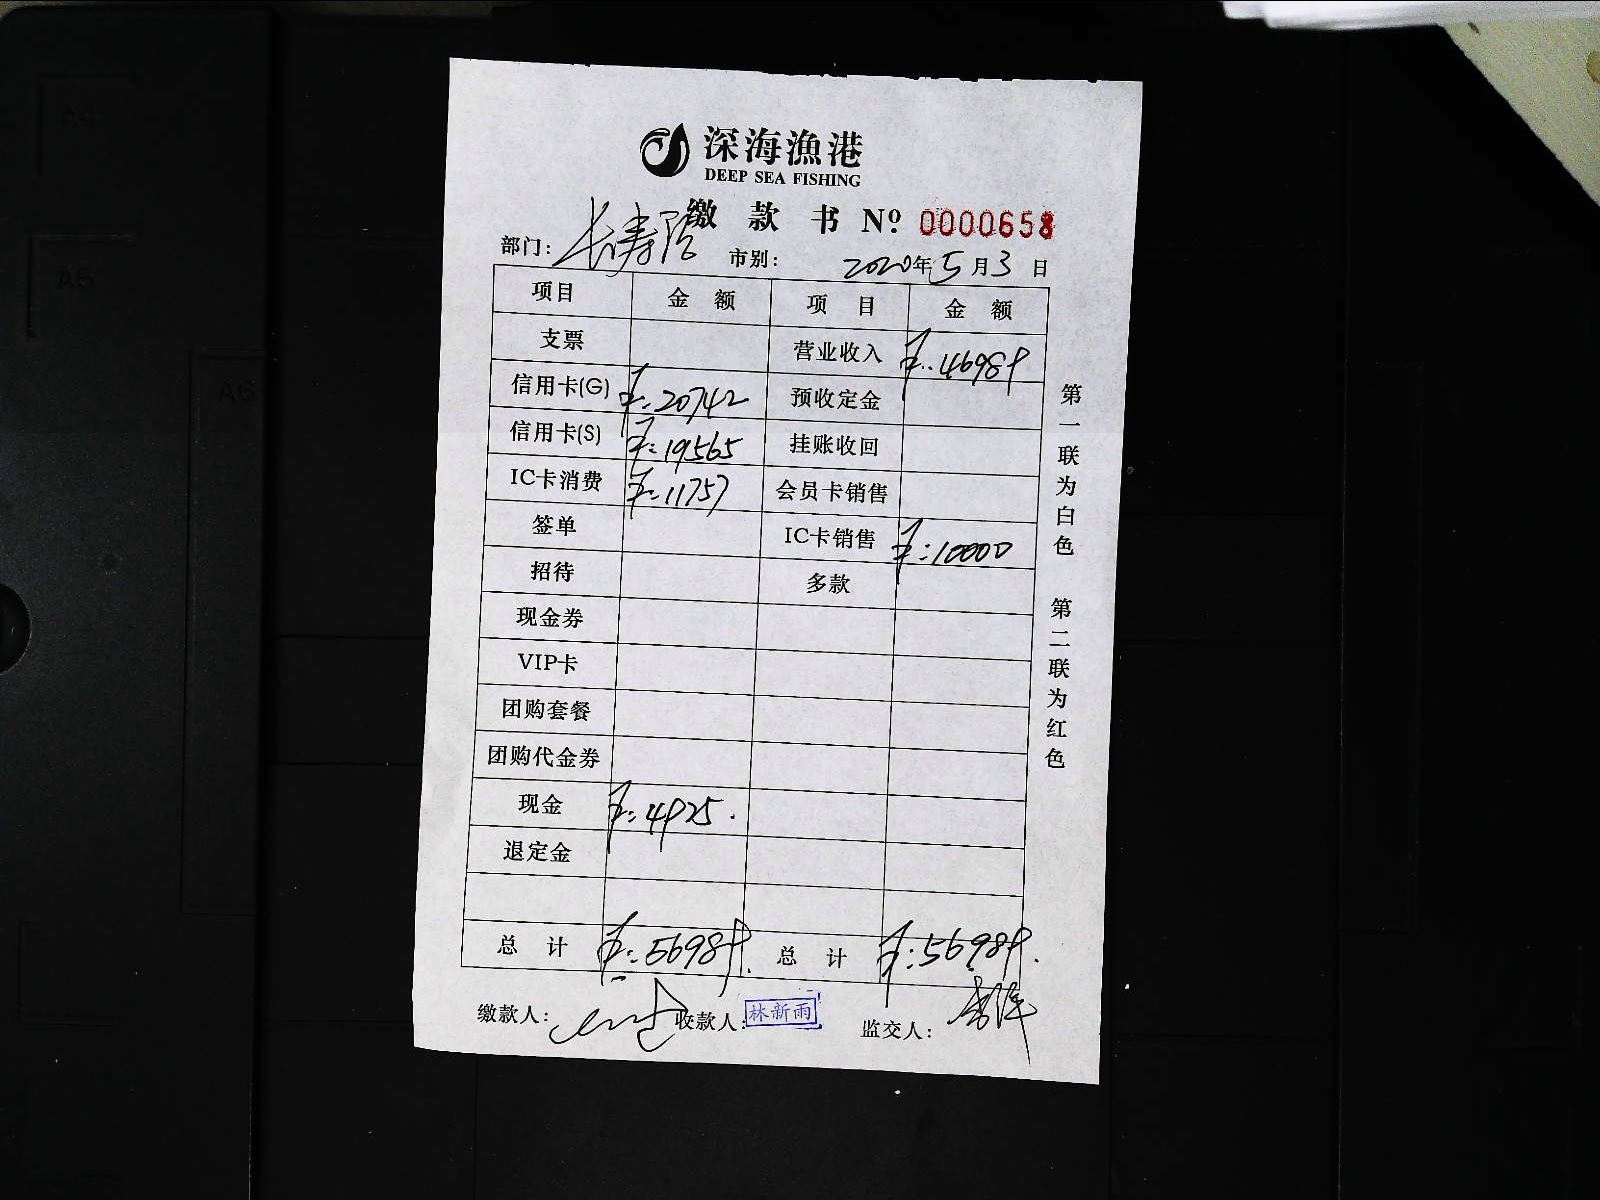 A4
A5
A6
深海漁港
DEEP SEA FISHING
缴款书 Nº 0000658
部门: 长寿路 市别: 2020年5月3日
项目 金额 项目 金额
支票 营业收入 ¥:46989
信用卡(G) ¥:20742 预收定金
信用卡(S) ¥:19565 挂账收回
IC卡消费 ¥:11757 会员卡销售
签单 IC卡销售 ¥:10000
招待 多款
现金券
VIP卡
团购套餐
团购代金券
现金 ¥:4925.
退定金
总计 ¥:56989. 总计 ¥:56989.
缴款人: 收款人: 林新雨 监交人:
第一联为白色 第二联为红色